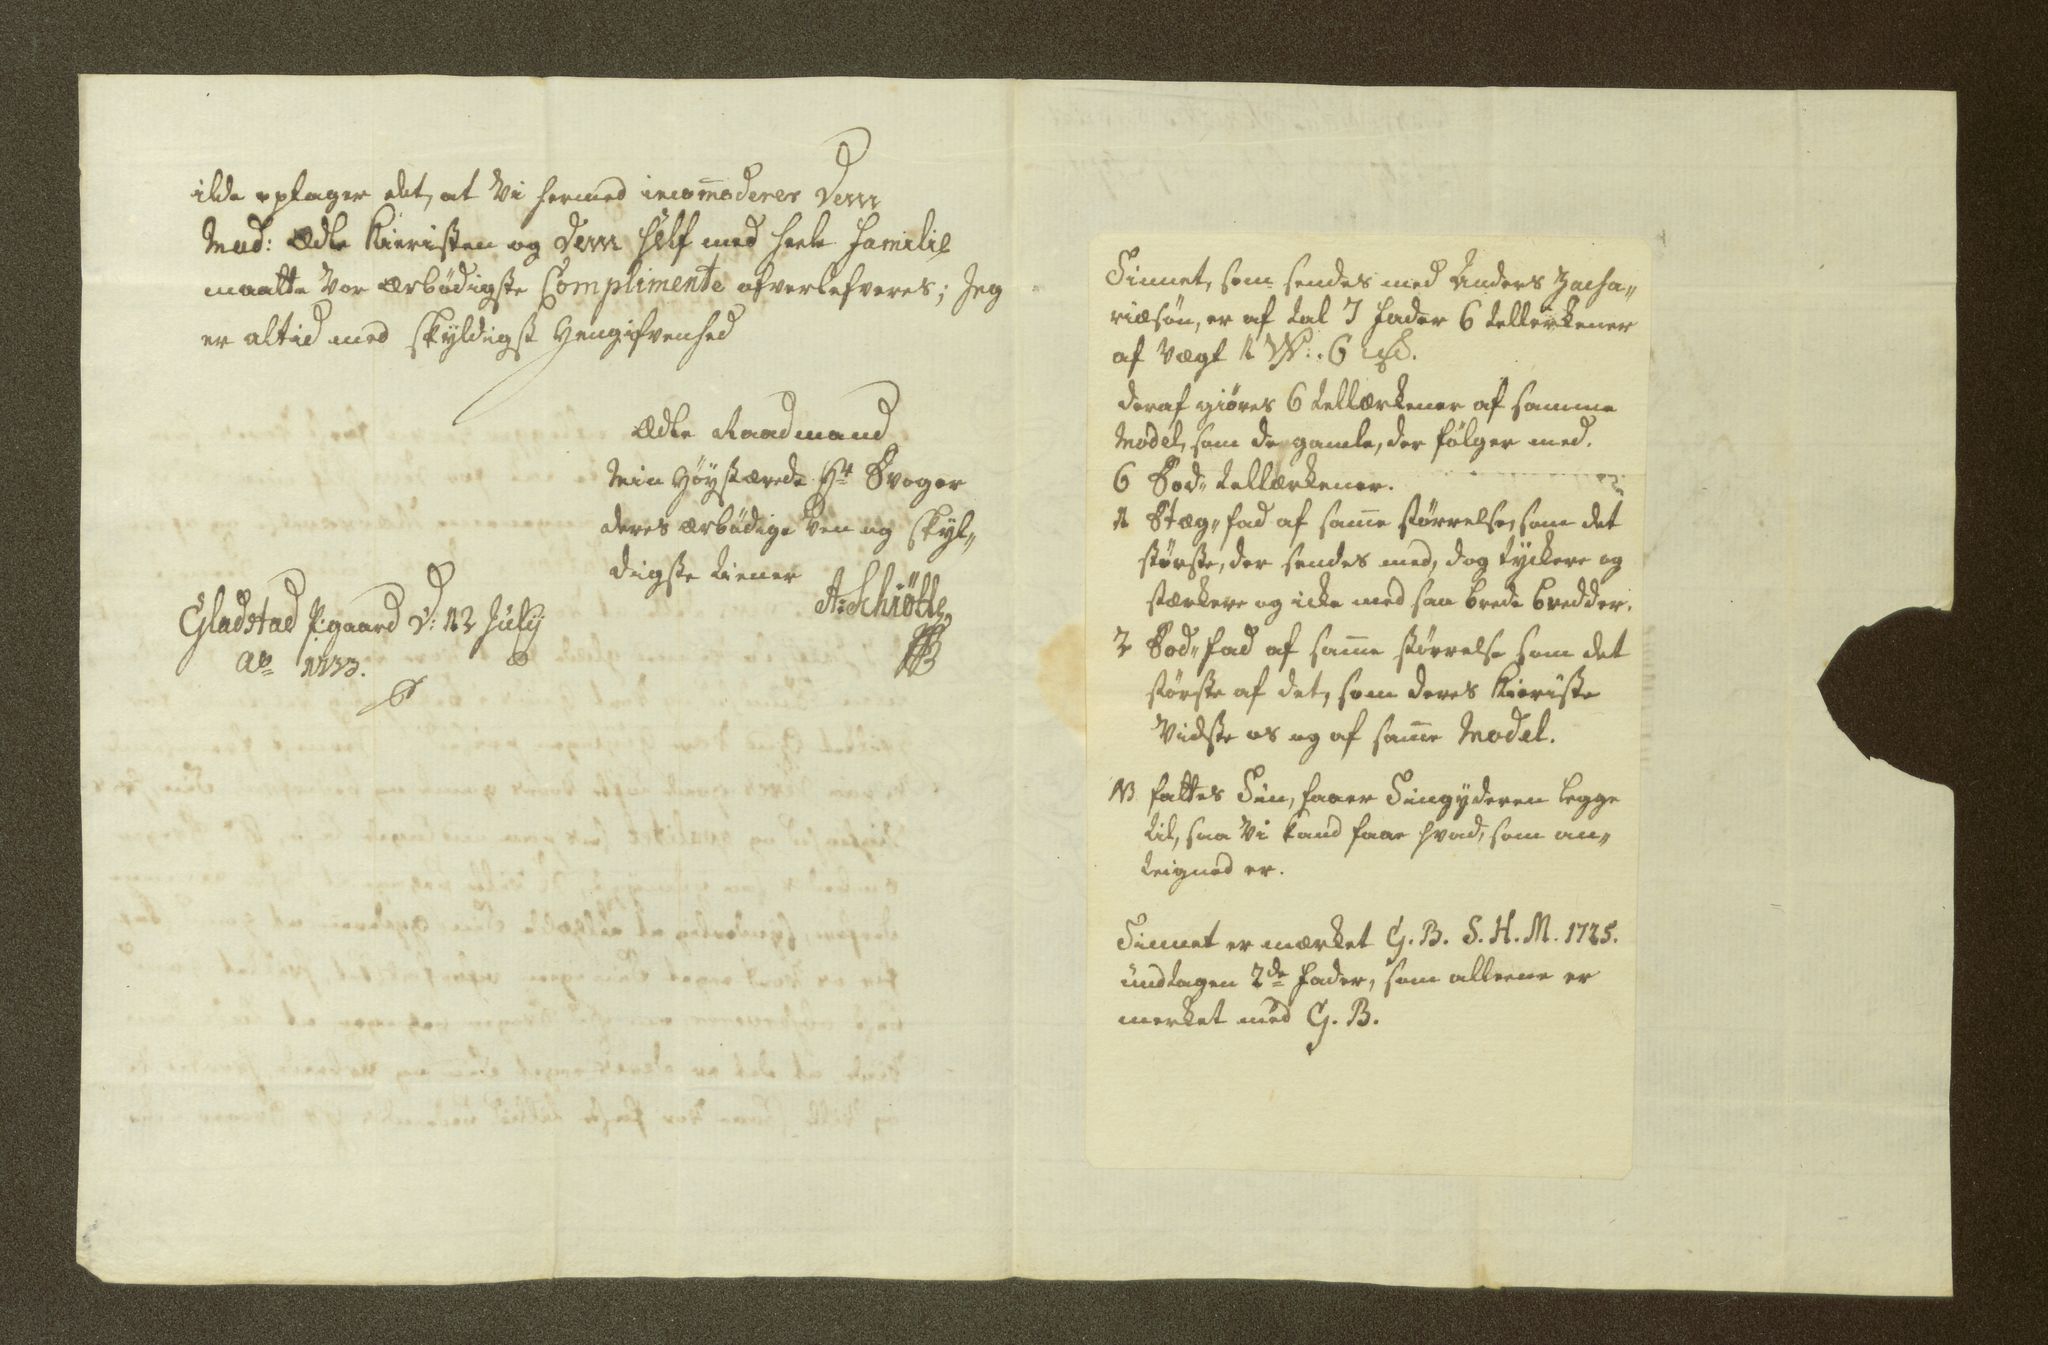 ilde optager det, at Vi hermed incom̅oderer Dem
Mad: Ædle Kieristen og Dem self med heele Familie
maatte Vor ærbödigste Complimente ofverlefveres; Jeg
er altid med skyldigst Hengifvenhed
Ædle Raadmand
Min Höystærede Hr Svoger
deres ærbödige Ven og skyl„
digste tiener
A: Schiötte
Gladstad P:gaard D: 12 July
Ao 1733.
Tinnet, som sendes med Anders Zacha„
riæsön, er af tal 7 fader 6 tellerkener
af Vægt 1 W: 6
deraf giöres 6 tellærkener af samme
Model, som de gamle, der fölger med.
6 Sod„ tellærkener.
1 Stæg„ fad af sam̅e störrelse, som det
störste, der sendes med, dog tyckere og
stærkere og icke med saa brede bredder.
2 Sod„ fad af sam̅e störrelse som det
störste af det, som deres Kieriste
Vidste os og af sam̅e Model.
NB fattes Tin, faaer Tingyderen legge
til, saa Vi kand faae hvad, som an„
teigned er.
Tinnet er mærket G. B. S. H. M. 1725.
undtagen 2de fader, som alleene er
merket med G. B.